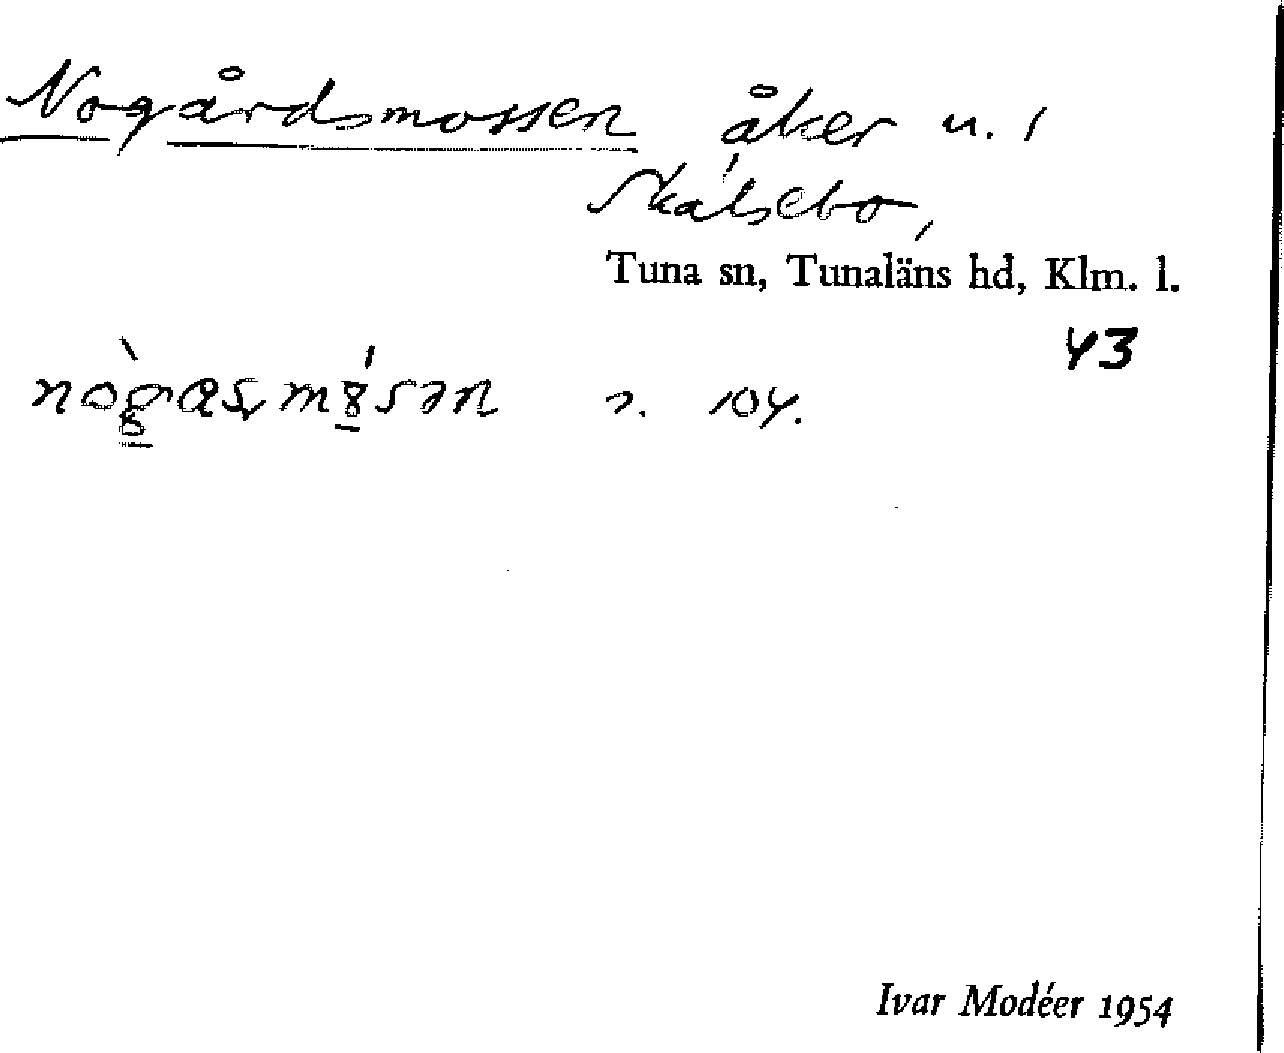 Nogårdsmossen åker u. 1
Skälsebo,
Tuna sn, Tunaläns hd, Klm. l.
43
s. 104.
Ivar Modéer 1954